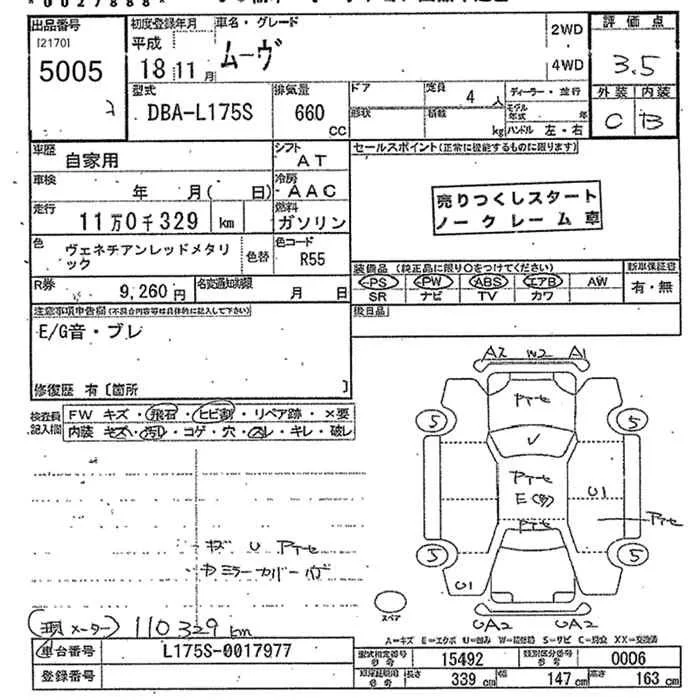 *0027888*
出品番号 初度登録年月 車名・グレード 2WD 評価点
[2170] 平成 ムーヴ
5005 18 11月 4WD 3.5
型式 排気量 ドア 定員 4人 ディーラー・並行 外装 内装
2 DBA-L175S 660 CC 形状 積載 kg モデル年式 年 C B
ハンドル 左・右
車歴 自家用 シフト AT セールスポイント(正常に機能するものに限ります)
車検 年 月( 日) 冷房 AAC
売りつくしスタート
ノークレーム車
走行 11万0千329 km 燃料 ガソリン
色 ヴェネチアンレッドメタリック 色替 色コード R55
装備品 (純正品に限り○をつけてください) 新車保証書
PS PW ABS エアB AW 有・無
SR ナビ TV カワ
R券 9,260円 名変通知期限 月 日
注意事項申告欄(不具合内容等は具体的に記入して下さい) 後日品
E/G音・ブレ
修復歴 有〔箇所 〕
検査員記入欄 FW キズ・飛石・ヒビ割・リペア跡・×要
内装 キズ・汚れ・コゲ・穴・スレ・キレ・破レ
A2 W2 A1
アセ
5 5
✓
アセ
E(多)
アセ
U1
アセ
5 5
U1
キズ U アセ
スペア
UA2 UA2
A=キズ E=エクボ U=凹み W=補修跡 S=サビ C=腐食 XX=交換済
現メーター) 110329 km
車台番号 L175S-0017977
登録番号
型式指定番号 参考 15492 類別区分番号 参考 0006
長さ 339 cm 幅 147 cm 高さ 163 cm